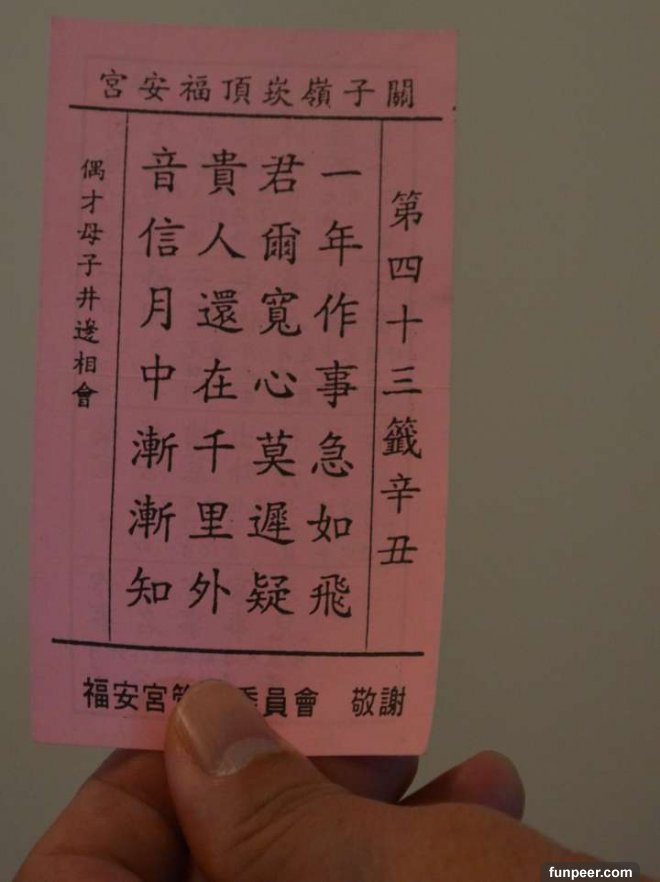 關子嶺崁頂福安宮
第四十三籤辛丑
一年作事急如飛
君爾寬心莫遲疑
貴人還在千里外
音信月中漸漸知
偶才母子井邊相會
福安宮管 委員會 敬謝
funpeer.com